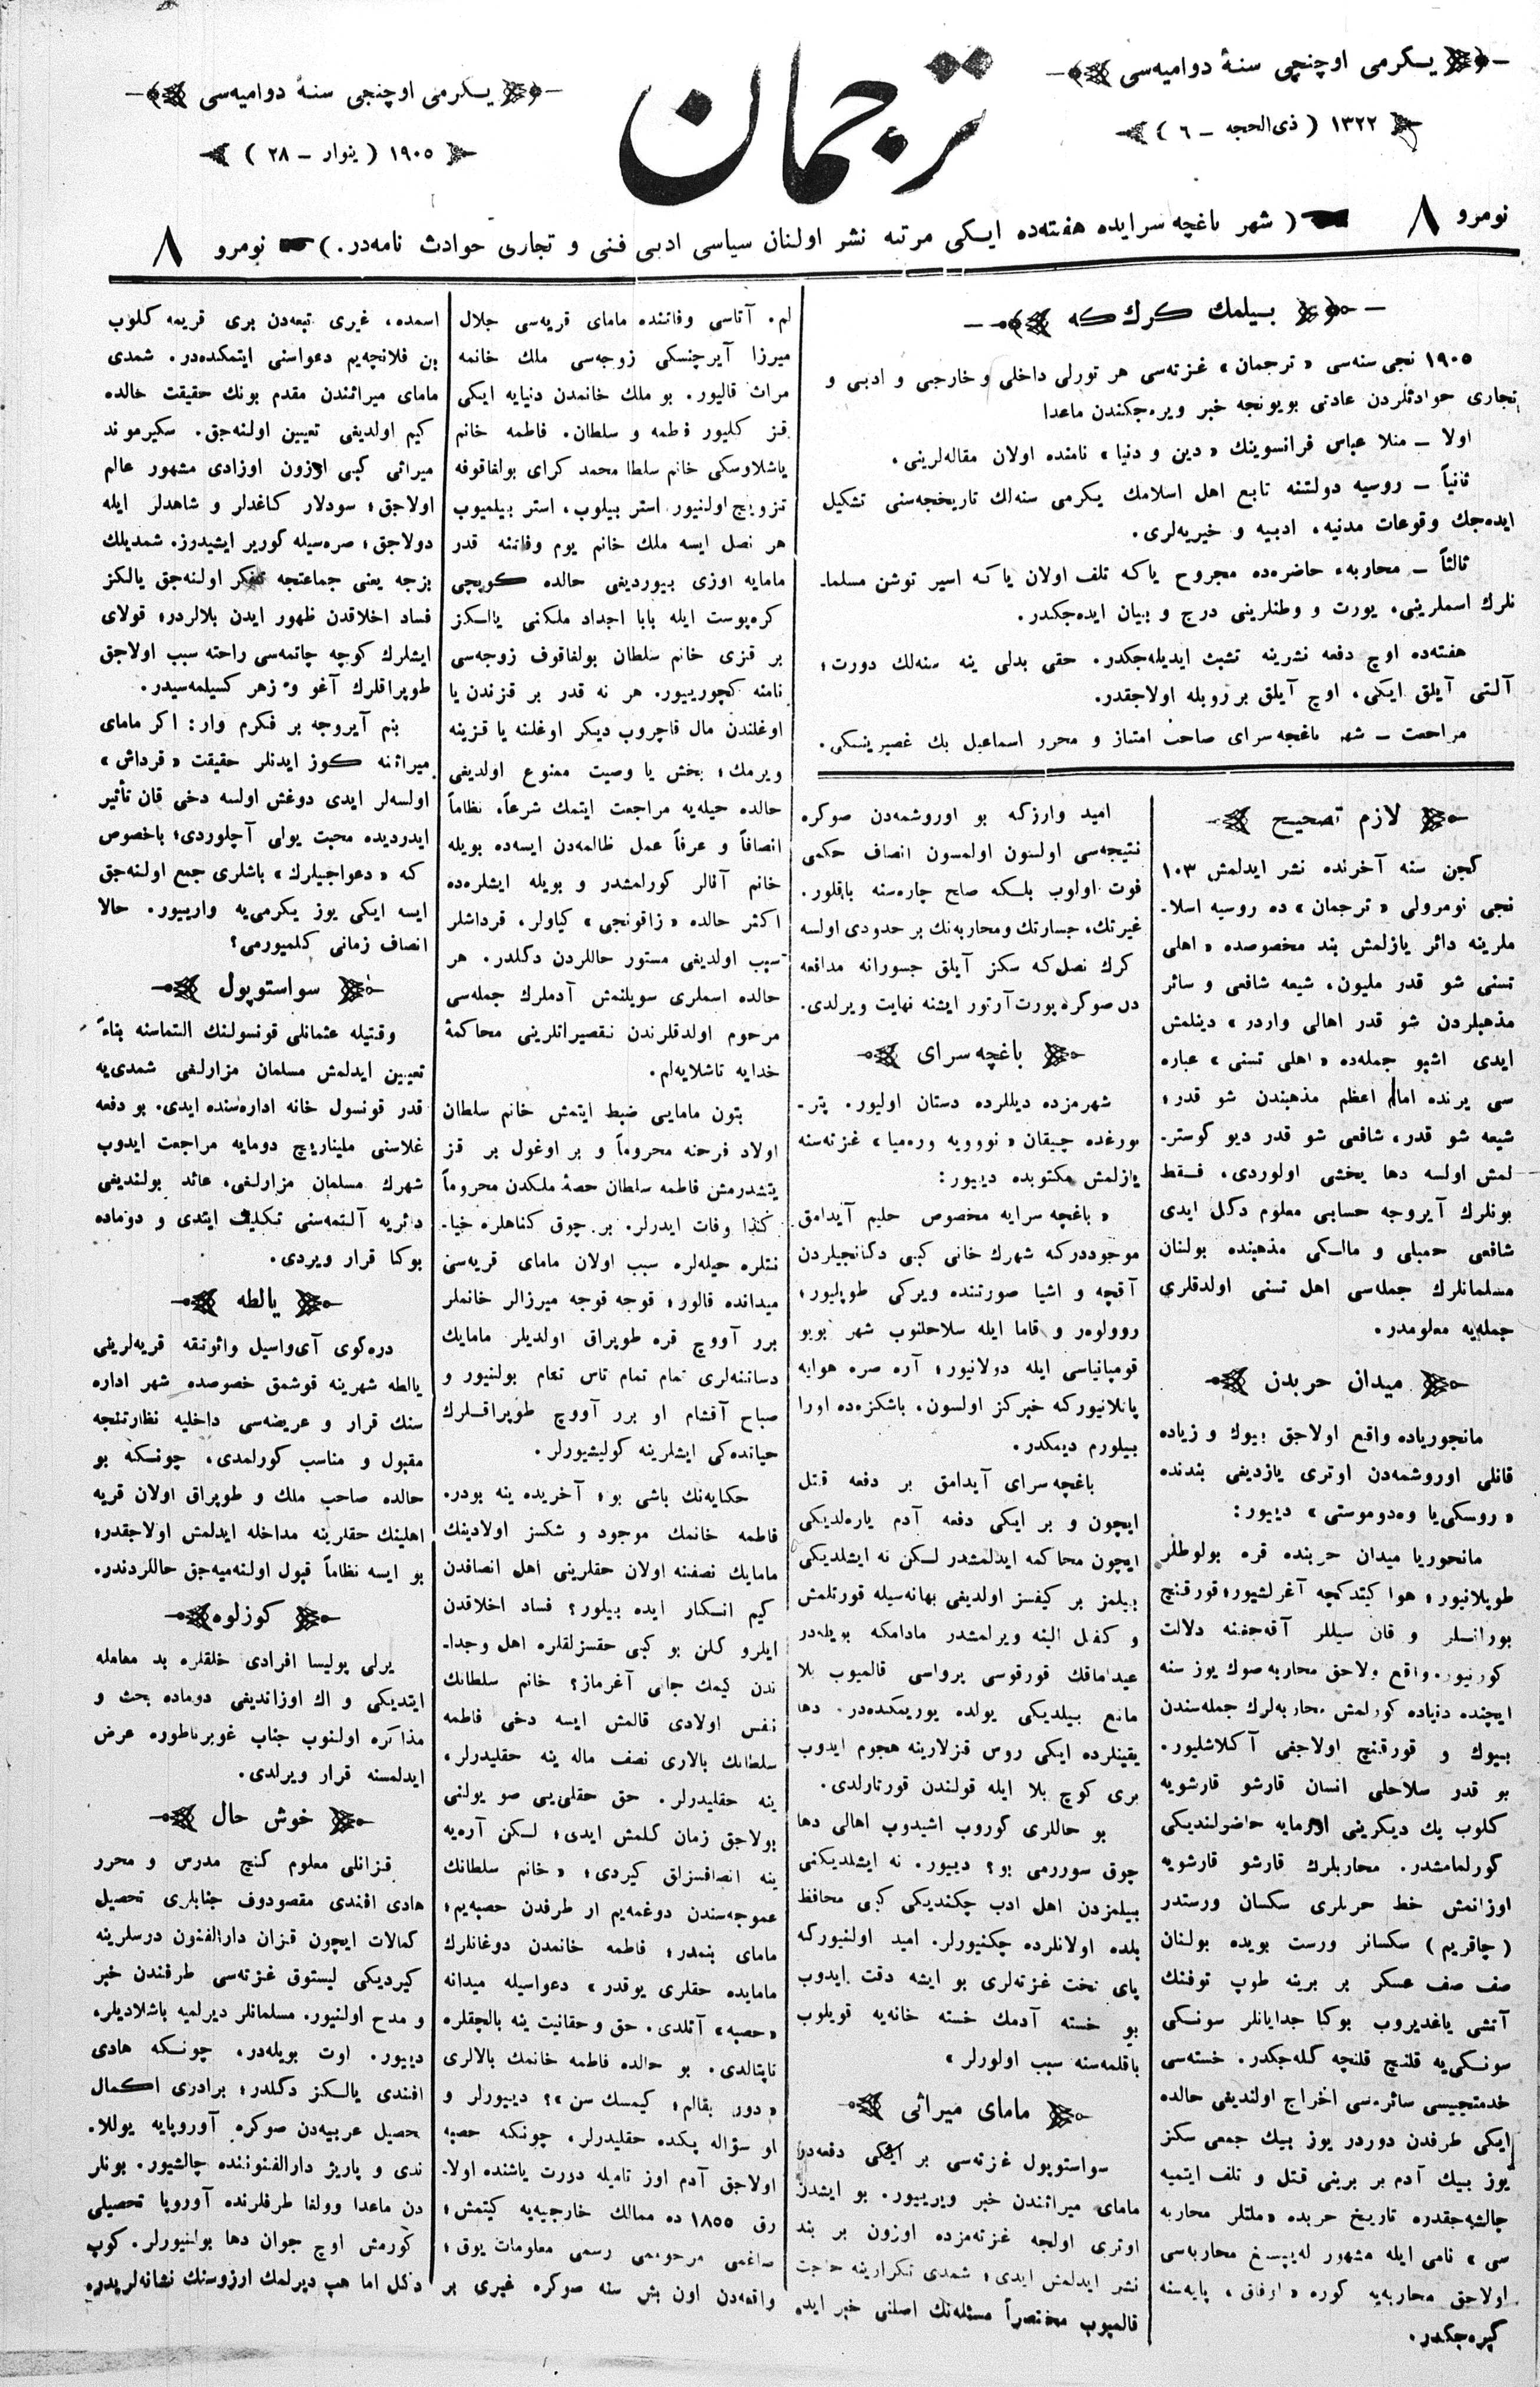 یـکرمی اوچنچی سنۀ دوامیه‌سی
١٣٢٢ ( ذی‌الحجه ــ ٦ )
ترجمان
یـکرمی اوچنجی سنۀ دوامیه‌سی
١٩٠٥ ( ینوار ــ ٢٨ )
نومرو ٨ ( شهر باغچه سرایده هفته‌ده ایـکی مرتبه نشر اولنان سیاسی ادبی فنی و تجاری حوادث نامه‌در. ) نومرو ٨
بـیلمك كرك كه
١٩٠٥ نجی سنه‌سی « ترجمان » غزته‌سی هر تورلی داخلی و خارجی و ادبی و
تجاری حوادثلردن عادتی بویونجه خبر ویره‌جكندن ماعدا
اولا ــ منلا عباس فرانسوینك « دین و دنیا » نامنده اولان مقاله‌لرینی.
ثانیاً ــ روسیه دولتنه تابع اهل اسلامك یكرمی سنه‌لك تاریخچه‌سنی تشكیل
ایده‌جك وقوعات مدنیه، ادبیه و خیریه‌لری.
ثالثاً ــ محاربهء حاضره‌ده مجروح یاكه تلف اولان یاكه اسیر توشن مسلما-
نلرك اسملرینی، یورت و وطنلرینی درج و بیان ایده‌جكدر.
هفته‌ده اوچ دفعه نشرینه تشبث ایدیله‌جكدر. حقی بدلی ینه سنه‌لك دورت؛
آلتی آیلق ایكی، اوچ آیلق بر روبله اولاجقدر.
مراجعت ــ شهر باغچه‌سرای صاحب امتیاز و محرر اسماعیل بك غصپرینسكی.
لازم تصحیح
كچن سنه آخرنده نشر ایدلمش ١٠٣
نجی نومرولی « ترجمان » ده روسیه اسلا-
ملرینه دائر یازلمش بند مخصوصده « اهلی
تسنی شو قدر ملیون، شیعه شافعی و سائر
مذهبلردن شو قدر اهالی واردر » دینلمش
ایدی اشبو جمله‌ده « اهلی تسنی » عباره
سی یرنده امام اعظم مذهبندن شو قدر؛
شیعه شو قدر، شافعی شو قدر دیو كوستر-
لمش اولسه دها یخشی اولوردی، فـقط
بونلرك آیروجه حسابی معلوم دكل ایدی
شافعی حمبلی و مالـكی مذهبنده بولنان
مسلمانلرك جمله‌سی اهل تسنی اولدقلری
جمله‌یه معلومدر.
میدان حربدن
مانجوریاده واقع اولاجق بیوك و زیاده
قانلی اوروشمه‌دن اوتری یازدیغی بندنده
« روسكی‌یا وه‌دوموستی » دییور:
مانجوریا میدان حربنده قره بولوطلر
طوپلانیور؛ هوا كیتدكچه آغرلشیور؛ قورقنچ
بورانـلر و قان سیللر آقه‌جغنه دلالت
كورنیور. واقع ولاجق محاربه صوك یوز سنه
ایچنده دنیاده كورلمش محاربه‌لرك جمله‌سندن
بیوك و قورقنچ اولاجغی آكلاشلیور.
بو قدر سلاحلی انسان قارشو قارشویه
كلوب یك دیكرینی اورمایه حاضرلندیكی
كورلمامشدر. محاربلرك قارشو قارشویه
اوزانمش خط حربلری سكسان ورستدر
( چاقریم ) سكسانر ورست بویده بولنان
صف صف عسكر بر برینه طوپ توفنك
آتشی یاغدیروب بوكا جدایانلر سونـكی
سونـكی‌یه قلنج قلنچه كله‌جكدر. خسته‌سی
خدمتجیسی سائره‌سی اخراج اولندیغی حالده
ایكی طرفدن دوردر یوز بیك جمعی سكز
یوز بیك آدم بر برینی قتل و تلف ایتمیه
چالشه‌جقدره تاریخ حربده « ملتلر محاربه
سی » نامی ایله مشهور له‌یپسغ محاربه‌سی
اولاجق محاربه‌یه كوره « اوفاق » پایه‌سنه
كیره‌جكدر.
امید وارزكه بو اوروشمه‌دن صوكره
نتیجه‌سی اولسون اولمسون انصاف حكمی
فوت اولوب بلـكه صلح چاره‌سنه باقلور.
غیرتك، جسارتك ومحاربه‌نك بر حدودی اولسه
كرك نصل‌كه سكز آیلق جسورانه مدافعه
دن صوكره یورت آرتور ایشنه نهایت ویرلدی.
باغچه سرای
شهرمزده دیللرده دستان اولیور. پتر-
بورغده چیقان « نوویه وره‌میا » غزته‌سنه
یازلمش مكتوبده دییور:
« باغچه سرایه مخصوص حلیم آیدامق
موجوددركه شهرك خانی كبی دكانجیلردن
آقچه و اشیا صورتنده ویركی طوپلیور؛
روولوه‌ر و قاما ایله سلاحلنوب شهر بویو
قومپانیاسی ایله دولانیور؛ آره صره هوایه
پاتلانیوركه خبركز اولسون، باشكزه‌ده اورا
بیلورم دیمكدر.
باغچه سرای آیدامق بر دفعه قتل
ایچون و بر ایكی دفعه آدم یاره‌لدیكی
ایچون محاكمه ایدلمشدر لـكن نه ایشلدیكی
بیلمز بر كیفسز اولدیغی بهانه‌سیله قورتلمش
و كفیل الینه ویرلمشدر مادامكه بویله‌در
عبدامافك قورقوسی پرواسی قالمیوب بلا
مانع بیلدیكی یولده یوریمكده‌در. دها
یقینلرده ایكی روس قزلارینه هجوم ایدوب
بری كوچ بلا ایله قولندن قورتارلدی.
بو حاللری كوروب اشیدوب اهالی دها
چوق سوررمی بو؟ دییور. نه ایشلدیكنی
بیلمزدن اهل ادب چكندیكی كبی محافظ
بلده اولانلرده چكنیورلر. امید اولنیوركه
پای تخت غزته‌لری بو ایشه دقت ایدوب
بو خسته آدمك خسته خانه‌یه قویلوب
باقلمه‌سنه سبب اولورلر »
مامای میراثی
سواستوپول غزته‌سی بر ایكی دفعه‌در
مامای میراثندن خبر ویرییور. بو ایشدن
اوتری اولجه غزته‌مزده اوزون بر بند
نشر ایدلمش ایدی؛ شمدی تكرارینه حاجت
قالمیوب مختصراً مسئله‌نك اصلنی خبر ایده
لم. آتاسی وفاتنده مامای قریه‌سی جلال
میرزا آیرچنسكی زوجه‌سی ملك خانمه
مراث قالیور. بو ملك خانمدن دنیایه ایكی
قز كلیور فطمه و سلطان. فاطمه خانم
یاشلاوسكی خانم سلطا محمد كرای بولغاقوفه
تزویج اولنیور. استر بیلوب، استر بیلمیوب
هر نصل ایسه ملك خانم یوم وفاتنه قدر
مامایه اوزی بیوردیغی حالده كوپچی
كره‌پوست ایله بابا اجداد ملكنی یالـكز
بر قزی خانم سلطان بولغاقوف زوجه‌سی
نامنه كچوریبور. هر نه قدر بر قزندن یا
اوغلندن مال قاچروب دیكر اوغلنه یا قزینه
ویرمك؛ بخش یا وصیت ممنوع اولدیغی
حالده حیله‌یه مراجعت ایتمك شرعاً، نظاماً
انصافاً و عرفاً عمل ظالمه‌دن ایسه‌ده بویله
خانم آقالر كورلمشدر و بویله ایشلره‌ده
اكثر حالده « زاقونجی » كیاولر، قرداشلر
سبب اولدیغی مستور حاللردن دكلدر. هر
حالده اسملری سویلنمش آدملرك جمله‌سی
مرحوم اولدقلرندن تقصیراتلرینی محاكمۀ
خدایه تاشلایه‌لم.
بتون مامایی ضبط ایتمش خانم سلطان
اولاد فرحنه محروماً و بر اوغول بر قز
یتشدرمش فاطمه سلطان حصۀ ملكدن محروماً
كذا وفات ایدرلر. بر چوق كناهلره خیا-
نتلره حیله‌لره سبب اولان مامای قریه‌سی
میدانده قالور؛ قوجه قوجه میرزالر خانملر
برر آووچ قره طوپراق اولدیلر مامایك
دسائتنه‌لری تمام تمام تاس تمام بولنیور و
صباح آقشام او برر آووچ طوپراقـلرك
حیانده‌كی ایشلرینه كولیشیورلر.
حكایه‌نك باشی بو؛ آخریده ینه بودر.
فاطمه خانمك موجود و شكسز اولادینك
مامایك نصفنه اولان حقلرینی اهل انصافدن
كیم انـكار ایده بیلور؟ فساد اخلاقدن
ایلرو كلن بو كبی حقسزلقلره اهل وجدا-
ندن كیمك جانی آغرماز؟ خانم سلطانك
نفس اولادی قالمش ایسه دخی فاطمه
سلطانك بالاری نصف ماله ینه حقلیدرلر،
ینه حقلیدرلر. حق حقلی‌یی صو یولنی
بولاجق زمان كلمش ایدی؛ لـكن آره‌یه
ینه انصافسزلق كیردی؛ « خانم سلطانك
عموجه‌سندن دوغمه‌یم ار طرفدن حصبه‌یم؛
مامای بنمدر؛ فاطمه خانمدن دوغانلرك
مامایده حقلری یوقدر » دعواسیله میدانه
« حصبه » آتلدی. حق و حقانیت ینه بالچقلره
تاپتالدی. بو حالده فاطمه خانمك بالالری
« دور بقالم؛ كیمسك سن »؟ دییورلر و
او سؤاله پكده حقلیدرلر، چونكه حصبه
اولاجق آدم اوز تامیله دورت یاشنده اولا-
رق ١٨٥٥ ده ممالك خارجیه‌یه كیتمش؛
صاغمی مرحوممی رسمی معلومات یوق؛
واقعه‌دن اون بش سنه صوكره غیری بر
اسمده، غیری تبعه‌دن بری قریمه كلوب
بن فلانچه‌یم دعواسنی ایتمكده‌در. شمدی
مامای میراثندن مقدم بونك حقیقت حالده
كیم اولدیغی تعیین اولنه‌جق. سكیرموند
میراثی كبی اوزون اوزادی مشهور عالم
اولاجق؛ سودلار كاغدلر و شاهدلر ایله
دولاجق؛ صره‌سیله كوریر ایشیدرز. شمدیلك
بزجه یعنی جماعتجه تفكر اولنه‌جق یالكز
فساد اخلاقدن ظهور ایدن بلالردر؛ قولای
ایشلرك كوچه چاتمه‌سی راحته سبب اولاجق
طوپراقلرك آغو و زهر كسیلمه‌سیدر.
بنم آیروجه بر فكرم وار: اكر مامای
میراثنه كوز ایدنلر حقیقت « قرداش »
اولسه‌لر ایدی دوغش اولسه دخی قان تأثیر
ایدردیده محبت یولی آچلوردی؛ باخصوص
كه « دعواجیلرك » باشلری جمع اولنه‌جق
ایسه ایكی یوز یكرمی‌یه وارییور. حالا
انصاف زمانی كلمیورمی؟
سواستوپول
وقتیله عثمانلی قونسولنك التماسنه بناءً
تعیین ایدلمش مسلمان مزارلغی شمدی‌یه
قدر قونسول خانه اداره‌سنده ایدی. بو دفعه
غلاسنی ملیناریچ دومایه مراجعت ایدوب
شهرك مسلمان مزارلغی، عائد بولندیغی
دائریه آلنمه‌سنی تكلیف ایتدی و دوماده
بوكا قرار ویردی.
یالطه
دره‌كوی آی‌واسیل واثوتقه قریه‌لرینی
یالطه شهرینه قوشمق خصوصده شهر اداره
سنك قرار و عریضه‌سی داخلیه نظارتنجه
مقبول و مناسب كورلمدی، چونـكه بو
حالده صاحب ملك و طوپراق اولان قریه
اهلینك حقلرینه مداخله ایدلمش اولاجقدر؛
بو ایسه نظاماً قبول اولنه‌میه‌جق حاللردندر.
كوزلوه
یرلی پولیسا افرادی خلقلره بد معامله
ایتدیكی و اك اوزاندیغی دوماده بحث و
مذاكره اولنوب جناب غوبرناطوره عرض
ایدلمسنه قرار ویرلدی.
خوش حال
قزانلی معلوم كنج مدرس و محرر
هادی افندی مقصودوف جنابلری تحصیل
كمالات ایچون قزان دارالفنون درسلرینه
كیردیكی لیستوق غزته‌سی طرفندن خبر
و مدح اولنیور. مسلمانلر دیرلمیه باشلادیلر،
دییور. اوت بویله‌در، چونـكه هادی
افندی یالـكز دكلدر؛ برادری اكمال
تحصیل عربیه‌دن صوكره آوروپایه یوللا-
ندی و پاریژ دارالفنوننده چالشیور. بونلر
دن ماعدا وولغا طرفلرنده آوروپا تحصیلی
كورمش اوچ جوان دها بولنیورلر. كوپ
دكل اما هپ دیرلمك ارزوسنك نشانه‌لریدر.